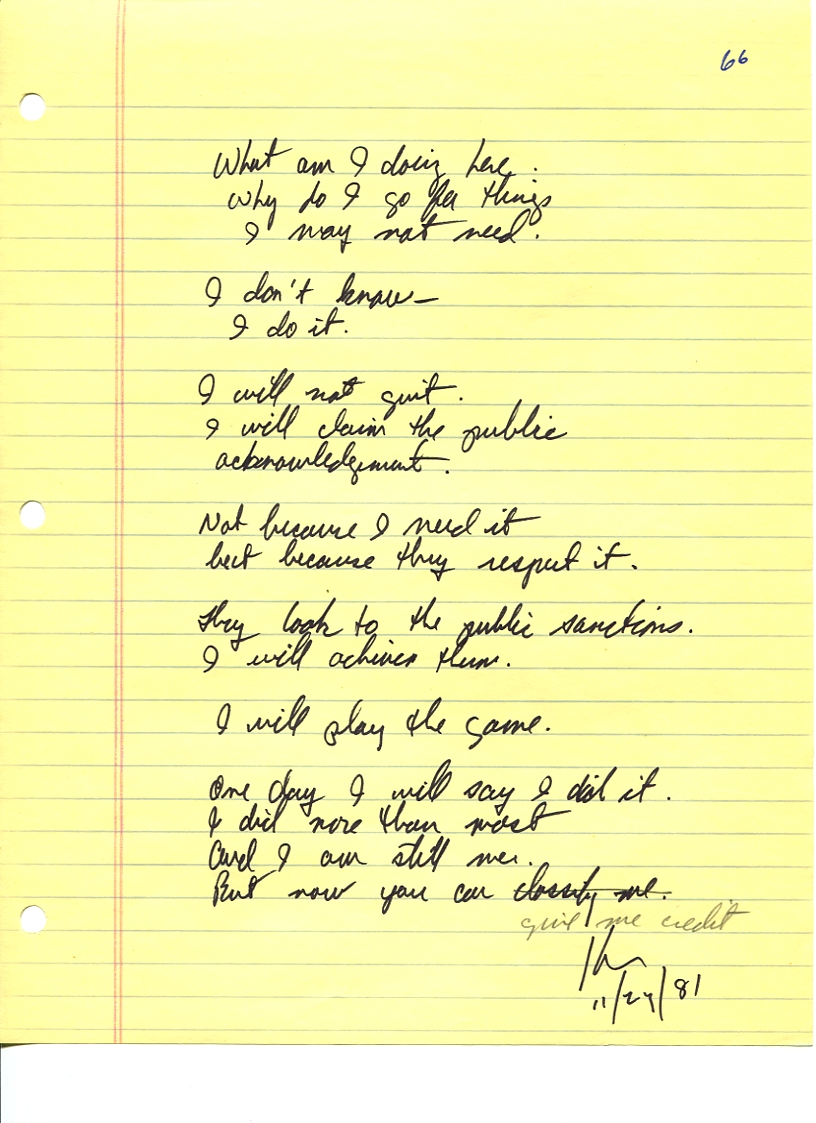 66
What am I doing here.
Why do I go for things
I may not need.
I don't know—
I do it.
I will not quit.
I will claim the public
acknowledgement.
Not because I need it
but because they respect it.
They look to the public sanctions.
I will achieve them.
I will play the game.
One day I will say I did it.
I did more than most
And I am still me.
But now you can classify me.
give me credit
11/27/81